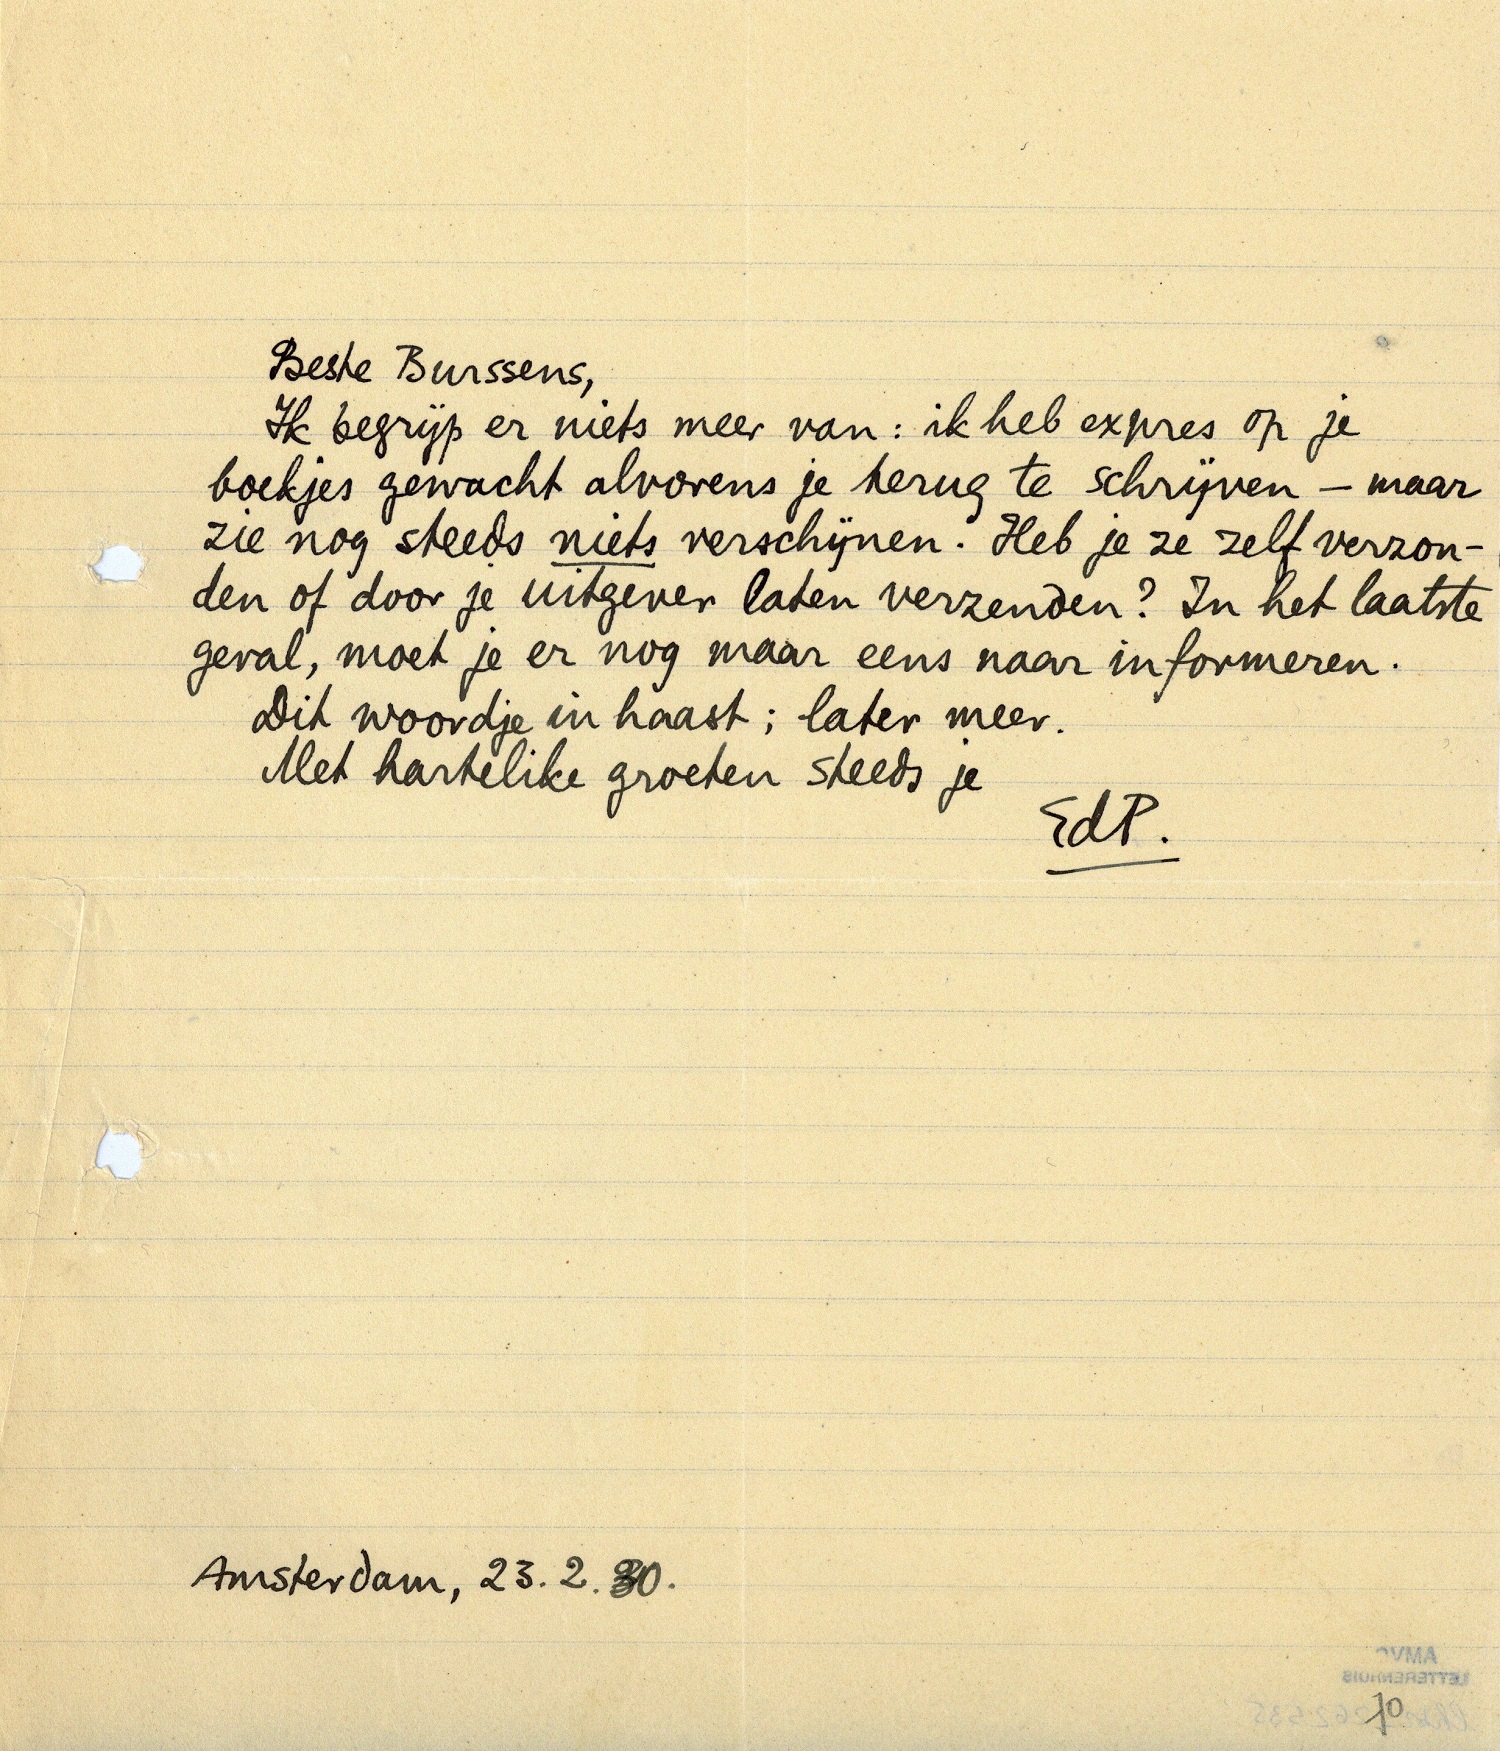 Beste Burssens,
Ik begrijp er niets meer van: ik heb expres op je
boekjes gewacht alvorens je terug te schrijven – maar
zie nog steeds niets verschijnen. Heb je ze zelf verzon-
den of door je uitgever laten verzenden? In het laatste
geval, moet je er nog maar eens naar informeren.
Dit woordje in haast; later meer.
Met hartelike groeten steeds je
EdP.
Amsterdam, 23. 2. 30.
AMVC
LETTERENHUIS
10